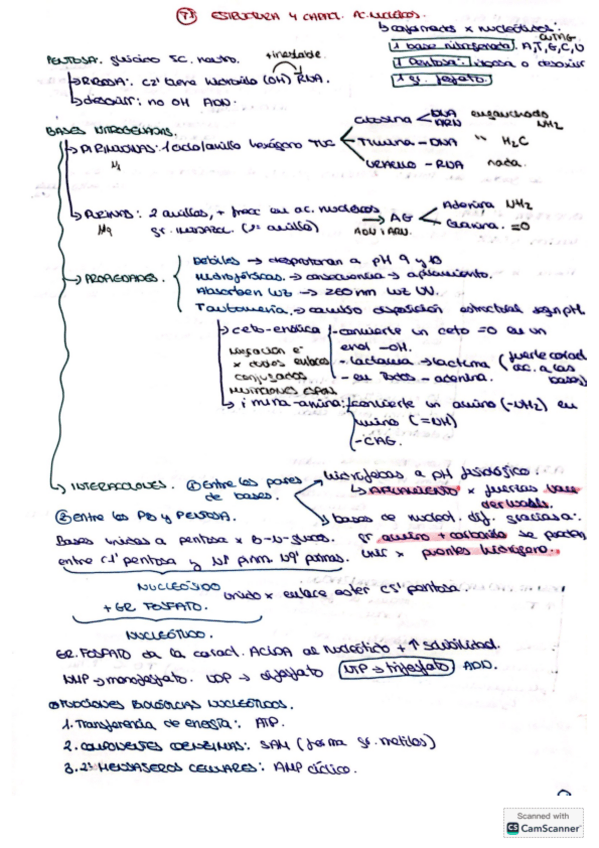 T3 ESTRUCTURA Y CARACT. AC. NUCLEICOS.
↳ conformados x nucleótidos:
CUTAG
1 base nitrogenada. A,T,G,C,U
1 Pentosa: ribosa o desoxirr
1 gr. fosfato.
PENTOSA. glúcido 5C. neutro.
+ inestable
↳ RIBOSA: C2' tiene hidroxilo (OH) RNA.
↳ desoxirr: no OH ADN.
BASES NITROGENADAS.
↳ PIRIMIDINAS: 1 ciclo/anillo hexágono TUC
N1
Citosina DNA ARN enganchado NH2
Timina - DNA " H3C
URACILO - RNA nada.
↳ PURINAS: 2 anillos, + frec en ac. nucleicos → AG
N9 gr. IMIDAZOL. (2º anillo) ADN i ARN.
Adenina NH2
Guanina. =O
→ PROPIEDADES.
Débiles → desprotonan a pH 9 y 10
Hidrofóbicas. → consecuencia → apilamiento.
Absorben luz → 260 nm luz UV.
Tautomería. → cambio disposición estructural según pH.
↳ ceto-enólica
- convierte un ceto =O en un enol -OH.
- lactama → lactima (fuerte caract ac. a las bases)
- en todos - adenina.
Migración e-
x dobles enlaces
conjugados
MUTACIONES ESPON.
↳ imina-amina:
convierte un amino (-NH2) en
imino (=NH)
- CAG.
↳ INTERACCIONES. ① Entre los pares de bases.
hidrófobas a pH fisiológico:
↳ APILAMIENTO x fuerzas Van der Waals.
↳ bases de nucleót. dif. gracias a:
gr amino + carbonilo se pueden
unir x puentes hidrógeno.
② Entre las BN y PENTOSA.
Bases unidas a pentosa x β-N-glucos.
entre C1' pentosa y N1 pirim. N9 purinas.
NUCLEÓSIDO
+ GR. FOSFATO. unido x enlace ester C5' pentosa.
NUCLEÓTIDO.
GR. FOSFATO da la caract. ACIDA al nucleótido + ↑ solubilidad.
NMP → monofosfato. NDP → difosfato NTP → trifosfato ADN.
FUNCIONES BIOLÓGICAS NUCLEÓTIDOS.
1. Transferencia de energía: ATP.
2. COMPONENTES COENZIMAS: SAM (forma gr. metilos)
3. 2º MENSAJEROS CELULARES: AMP cíclico.
Scanned with
CS CamScanner